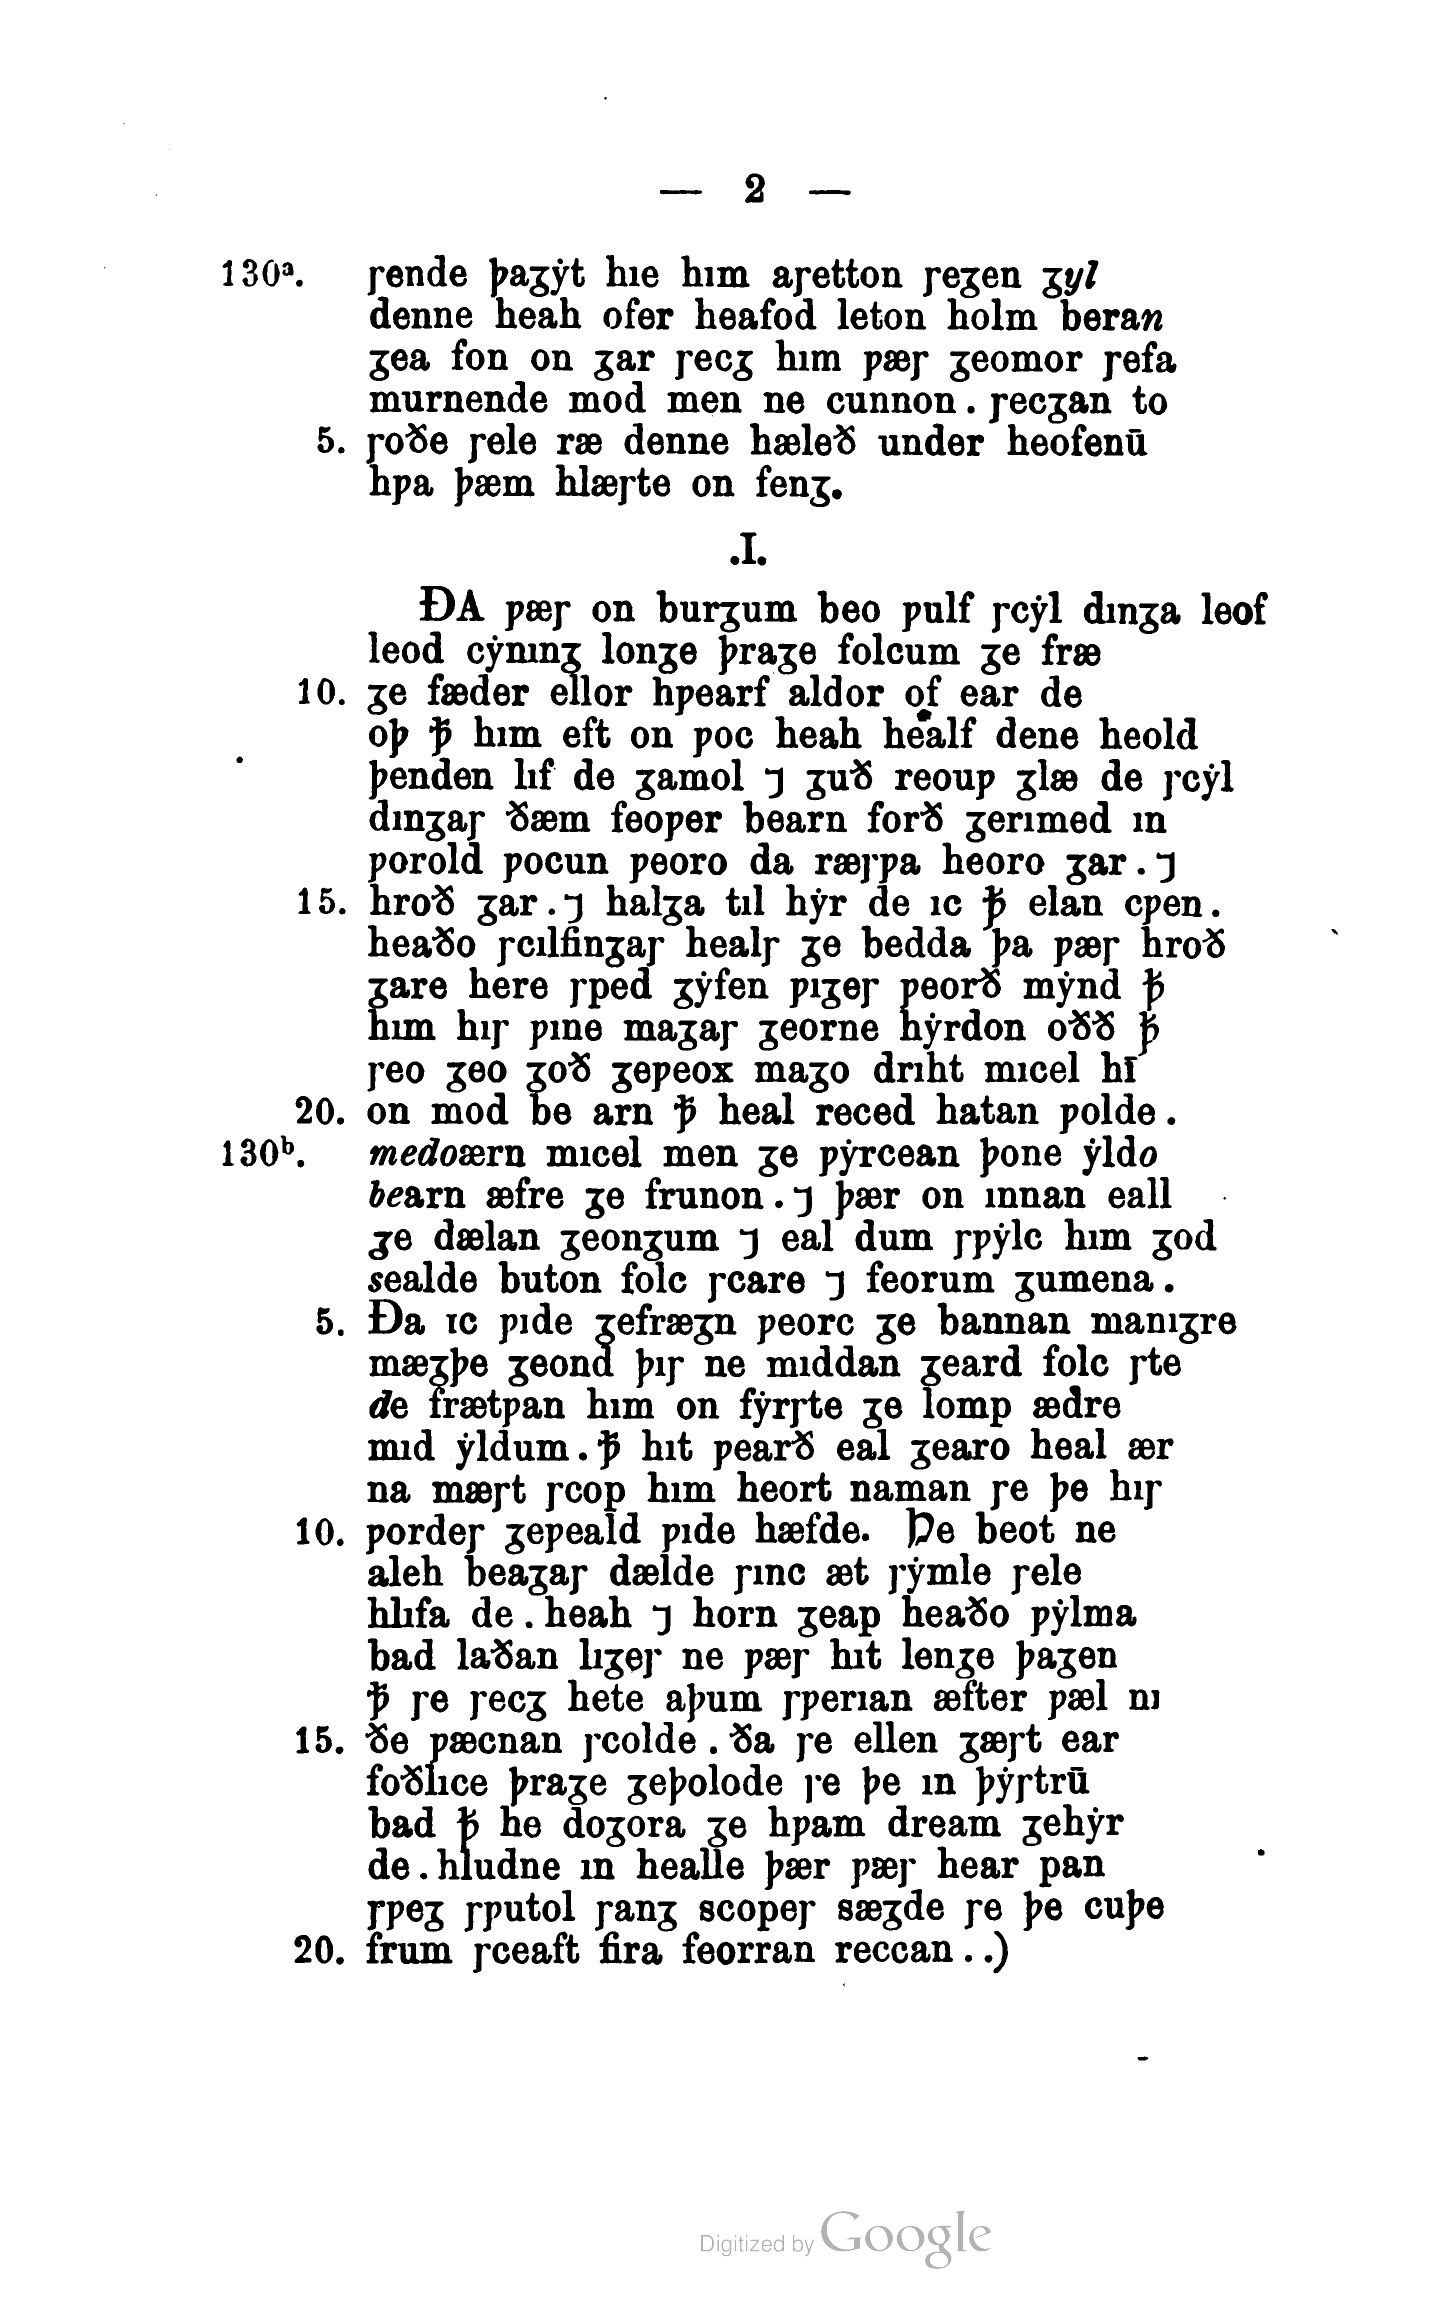 — 2 —
130ᵃ. ꞅende þaʒẏt hıe hım aꞅetton ꞅeʒen ʒyl
denne heah ofer heafod leton holm beran
ʒea fon on ʒar ꞅecʒ hım ƿæꞅ ʒeomor ꞅefa
murnende mod men ne cunnon . ꞅecʒan to
5. ꞅoðe ꞅele ræ denne hæleð under heofenū
hƿa þæm hlæꞅte on fenʒ.
.I.
ÐA ƿæꞅ on burʒum beo ƿulf ꞅcẏl dınʒa leof
leod cẏnınʒ lonʒe þraʒe folcum ʒe fræ
10. ʒe fæder ellor hƿearf aldor of ear de
oþ ꝥ hım eft on ƿoc heah healf dene heold
þenden lıf de ʒamol ⁊ ʒuð reouƿ ʒlæ de ꞅcẏl
dınʒaꞅ ðæm feoƿer bearn forð ʒerımed ın
ƿorold ƿocun ƿeoro da ræꞅƿa heoro ʒar . ⁊
15. hroð ʒar . ⁊ halʒa tıl hẏr de ıc ꝥ elan cƿen .
heaðo ꞅcılfinʒaꞅ healꞅ ʒe bedda þa ƿæꞅ hroð
ʒare here ꞅƿed ʒẏfen ƿıʒeꞅ ƿeorð mẏnd ꝥ
hım hıꞅ ƿıne maʒaꞅ ʒeorne hẏrdon oðð ꝥ
ꞅeo ʒeo ʒoð ʒeƿeox maʒo drıht mıcel hī
20. on mod be arn ꝥ heal reced hatan ƿolde .
130ᵇ. medoærn mıcel men ʒe ƿẏrcean þone ẏldo
bearn æfre ʒe frunon . ⁊ þær on ınnan eall
ʒe dælan ʒeonʒum ⁊ eal dum ꞅƿẏlc hım ʒod
sealde buton folc ꞅcare ⁊ feorum ʒumena .
5. Ða ıc ƿıde ʒefræʒn ƿeorc ʒe bannan manıʒre
mæʒþe ʒeond þıꞅ ne mıddan ʒeard folc ꞅte
de frætƿan hım on fẏrꞅte ʒe lomp ædre
mıd ẏldum . ꝥ hıt ƿearð eal ʒearo heal ær
na mæꞅt ꞅcop hım heort naman ꞅe þe hıꞅ
10. ƿordeꞅ ʒeƿeald ƿıde hæfde. Ƿe beot ne
aleh beaʒaꞅ dælde ꞅınc æt ꞅẏmle ꞅele
hlıfa de . heah ⁊ horn ʒeap heaðo ƿẏlma
bad laðan lıʒeꞅ ne ƿæꞅ hıt lenʒe þaʒen
ꝥ ꞅe ꞅecʒ hete aþum ꞅƿerıan æfter ƿæl nı
15. ðe ƿæcnan ꞅcolde . ða ꞅe ellen ʒæꞅt ear
foðlıce þraʒe ʒeþolode ꞅe þe ın þẏꞅtrū
bad ꝥ he doʒora ʒe hƿam dream ʒehẏr
de . hludne ın healle þær ƿæꞅ hear pan
ꞅƿeʒ ꞅƿutol ꞅanʒ scopeꞅ sæʒde ꞅe þe cuþe
20. frum ꞅceaft fira feorran reccan . .)
Digitized by Google